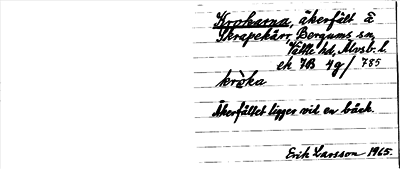 Krokarna, åkerfält å
Skrapekärr, Bergums sn,
Vättle hd, Älvsb. l.
ek 7B 4g / 785
kròka
Åkerfältet ligger vid en bäck.
Erik Larsson 1965.